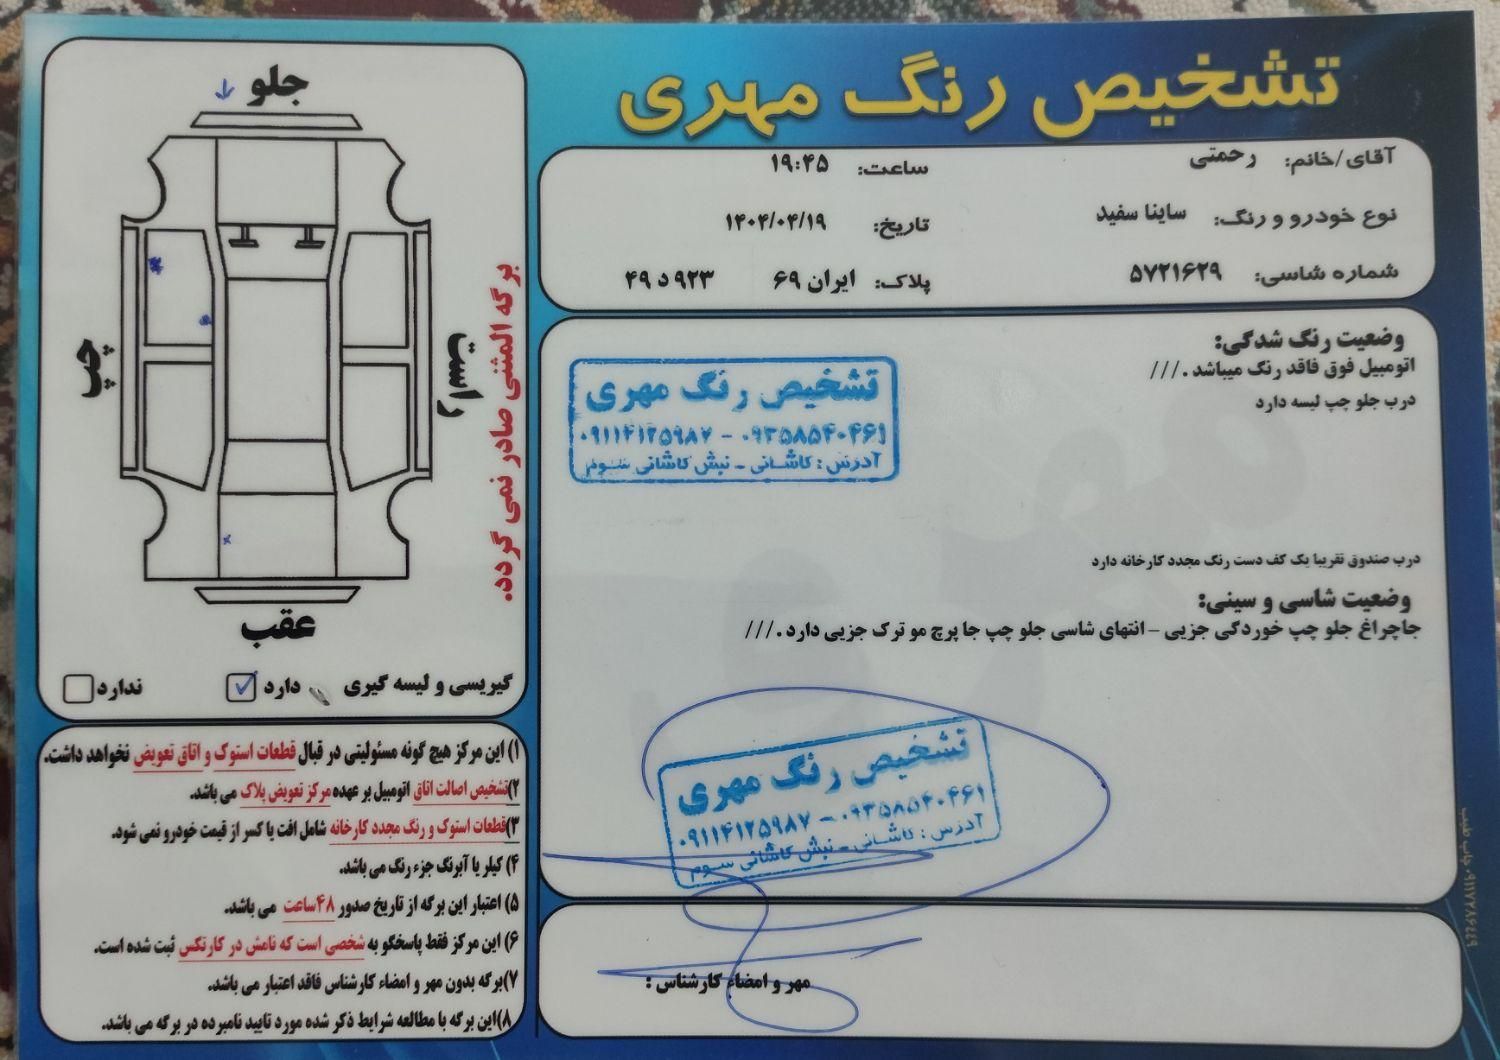 تشخیص رنگ مهری
آقای/خانم: رحمتی
ساعت: ۱۹:۴۵
نوع خودرو و رنگ: ساینا سفید
تاریخ: ۱۴۰۴/۰۴/۱۹
شماره شاسی: ۵۷۲۱۶۲۹
پلاک: ایران ۶۹ ۹۲۳ د ۴۹
وضعیت رنگ شدگی:
اتومبیل فوق فاقد رنگ میباشد.///
درب جلو چپ لیسه دارد
تشخیص رنگ مهری
۰۹۱۱۴۱۲۵۹۸۷ - ۰۹۳۵۸۵۴۰۴۶۱
آدرس: کاشانی - نبش کاشانی سوم
درب صندوق تقریبا یک کف دست رنگ مجدد کارخانه دارد
وضعیت شاسی و سینی:
جاچراغ جلو چپ خوردگی جزیی - انتهای شاسی جلو چپ جا پرچ مو ترک جزیی دارد.///
تشخیص رنگ مهری
۰۹۱۱۴۱۲۵۹۸۷ - ۰۹۳۵۸۵۴۰۴۶۱
آدرس: کاشانی - نبش کاشانی سوم
مهر و امضاء کارشناس:
جلو
چپ
راست
عقب
برگه المثنی صادر نمی گردد.
گیریسی و لیسه گیری دارد ندارد
۱) این مرکز هیچ گونه مسئولیتی در قبال قطعات استوک و اتاق تعویض نخواهد داشت.
۲)تشخیص اصالت اتاق اتومبیل بر عهده مرکز تعویض پلاک می باشد.
۳)قطعات استوک و رنگ مجدد کارخانه شامل افت یا کسر از قیمت خودرو نمی شود.
۴) کیلر یا آبرنگ جزء رنگ می باشد.
۵) اعتبار این برگه از تاریخ صدور ۴۸ساعت می باشد.
۶) این مرکز فقط پاسخگو به شخصی است که نامش در کارتکس ثبت شده است.
۷)برگه بدون مهر و امضاء کارشناس فاقد اعتبار می باشد.
۸)این برگه با مطالعه شرایط ذکر شده مورد تایید نامبرده در برگه می باشد.